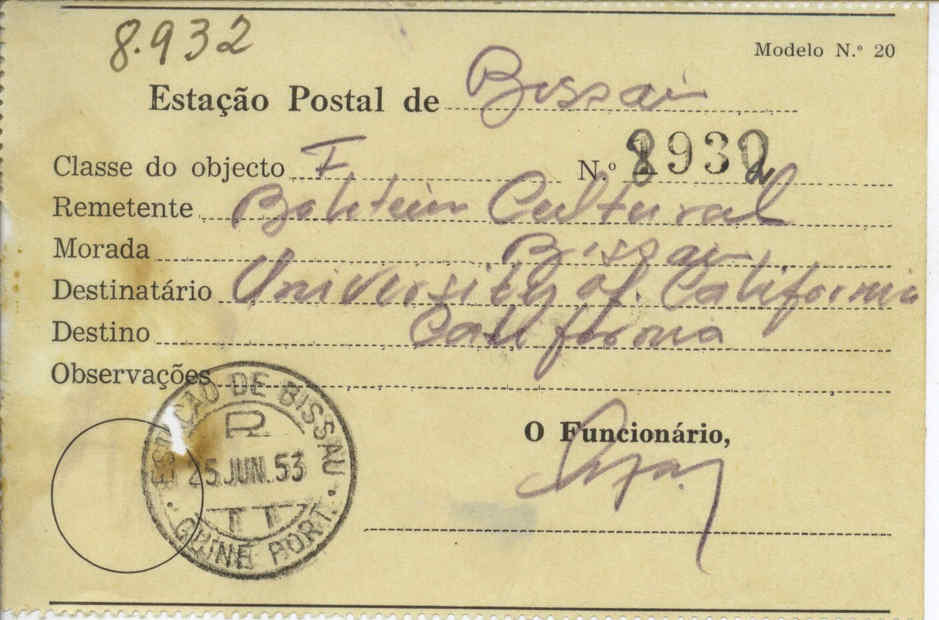 8.932
Modelo N.º 20
Estação Postal de Bissau
Classe do objecto F N.º 8932
Remetente Boletim Cultural
Morada Bissau
Destinatário University of California
Destino California
Observações
ESTAÇÃO DE BISSAU
R
25.JUN.53
GUINÉ PORT.
O Funcionário,